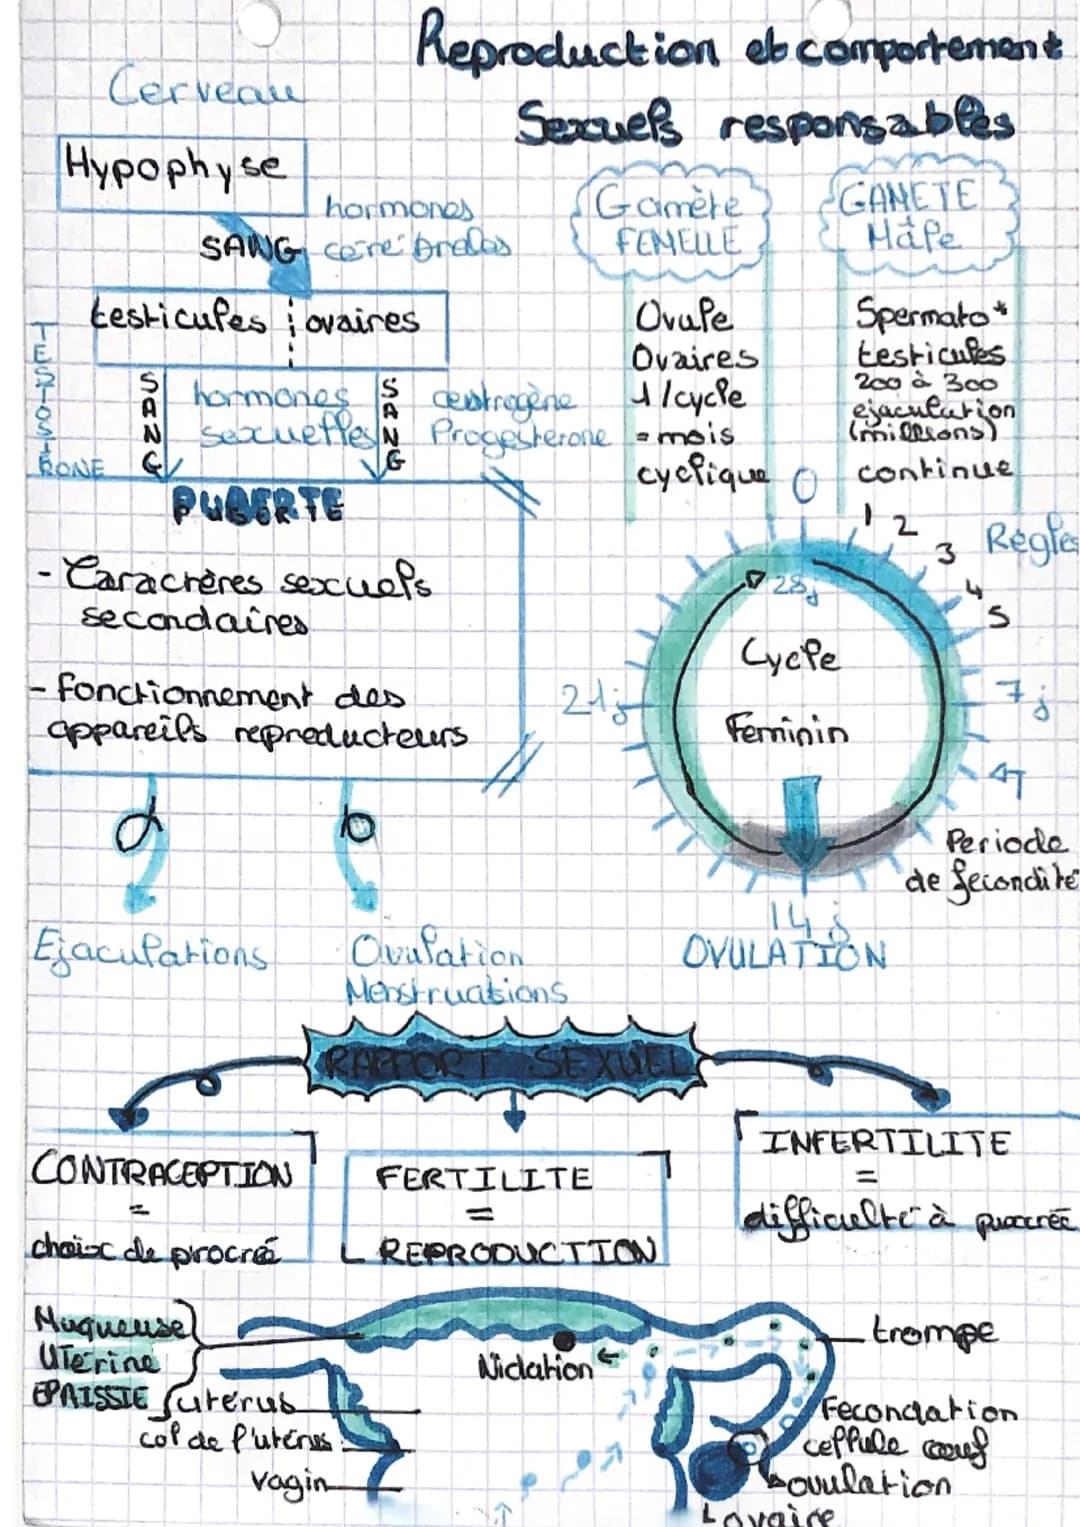 Reproduction et comportement
Sexuels responsables
Cerveau
Hypophyse
hormones
SANG cérébrales
testicules ovaires
TESTOSTÉRONE
SANG
hormones
sexuelles
SANG
œstrogène
Progesterone
PUBERTE
- Caractères sexuels
secondaires
- fonctionnement des
appareils repreducteurs
Ejaculations
Ovulation
Menstruations
Gamète
FEMELLE
Ovule
Ovaires
1/cycle
= mois
cyclique
GAMETE
Mâle
Spermato*
testicules
200 à 300
ejaculution
(millions)
continue
0
1
2
3
Régles
4
5
28j
Cycle
Feminin
7j
21j
Periode
de fécondité
14j
OVULATION
RAPPORT SEXUEL
CONTRACEPTION
=
choix de procréé
FERTILITE
=
REPRODUCTION
INFERTILITE
=
difficulté à procréé
Muqueuse
UTérine
EPAISSIE
utérus
col de l'utérus
vagin
Nidation
trompe
Fecondation
cellule œuf
ovulation
ovaire